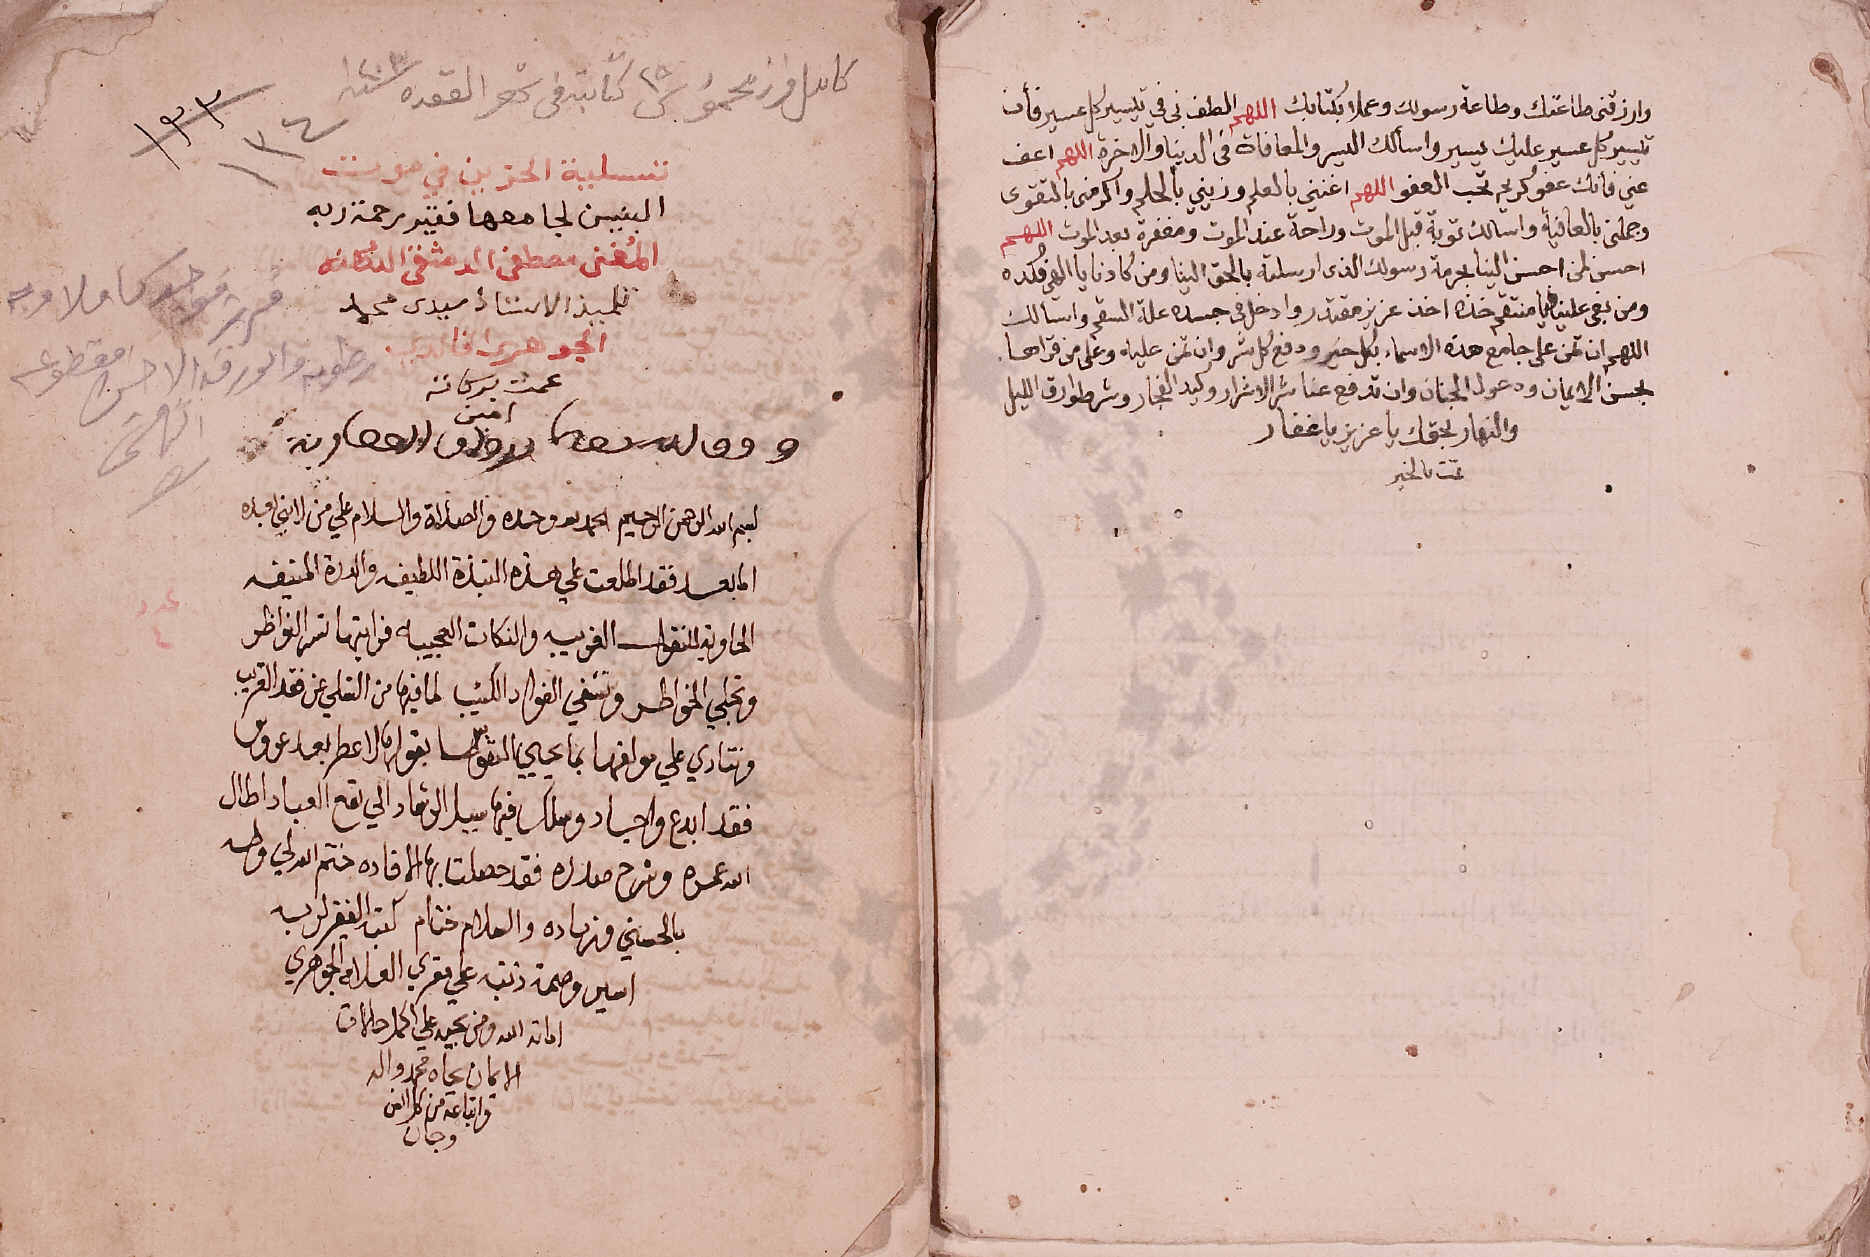 وارزقنى طاعتك وطاعة رسولك وعملا بكتابك اللهم الطف بى فى تيسير كل عسير فأن
تيسير كل عسير عليك يسير واسألك اليسر والمعافاة فى الدنيا والاخرة اللهم اعف
عنى فانك عفو كريم تحب العفو اللهم اغننى بالعلم وزينى بالحلم واكرمنى بالتقوى
وجملنى بالعافية واسالك توبة قبل الموت وراحة عند الموت ومغفرة بعد الموت اللهم
احسن لمن احسن الينا بحرمة رسولك الذى ارسلته بالحق الينا ومن كادنا يا الهى فكده
ومن بغى علينا يا منتقم خذه اخذ عزيز مقتدر وادخل فى جسده علة السقم واسالك
اللهم ان تمن على جامع هذه الاسماء بكل خير ودفع كل شر وان تمن عليه وعلى من قراها
بحسن الايمان ودخول الجنان وان تدفع عنا شر الاشرار وكيد الفجار وشر طوارق الليل
والنهار بحقك يا عزيز يا غفار
تمت بالخير
كامل فراز محموس ٢٥ كتابته فى شهر القعده سنة
١٣٣
١٣٤
تسلية الحزين في موت
البنين لجامعها فقير رحمة ربه
المغنى مصطفى الدمشقى
تلميذ الاستاذ سيدى محمد
الجوهرى الخالدى
عمت بركاته
امين
بسم الله الرحمن الرحيم الحمد لله وحده والصلاة والسلام علي من لا نبي بعده
اما بعد فقد اطلعت علي هذه النبذة اللطيفه والدرة المنيفه
الحاوية للنقول الغريبه والنكات العجيبه فرايتها تسر النواظر
وتجلي الخواطر وتشفي الفواد الكئيب لما فيها من التسلي عن فقد القريب
وتنادي علي مولفها بما يحيي النفوسا بقولها لا عطر بعد عروسا
فقد ابدع واجاد وسلك فيها سبيل الرشاد الي نفع العباد اطال
الله عمره وشرح صدره فقد حصلت بها الافاده ختم الله لي وله
بالحسني وزياده والسلام ختام كتبه الفقير لربه
اسير وصمة ذنبه علي فقري العلامة الجوهري
اماته الله ومن يحبه علي اكمل حالات
الايمان بجاه محمد واله
واتباعه من كل انس
وجان